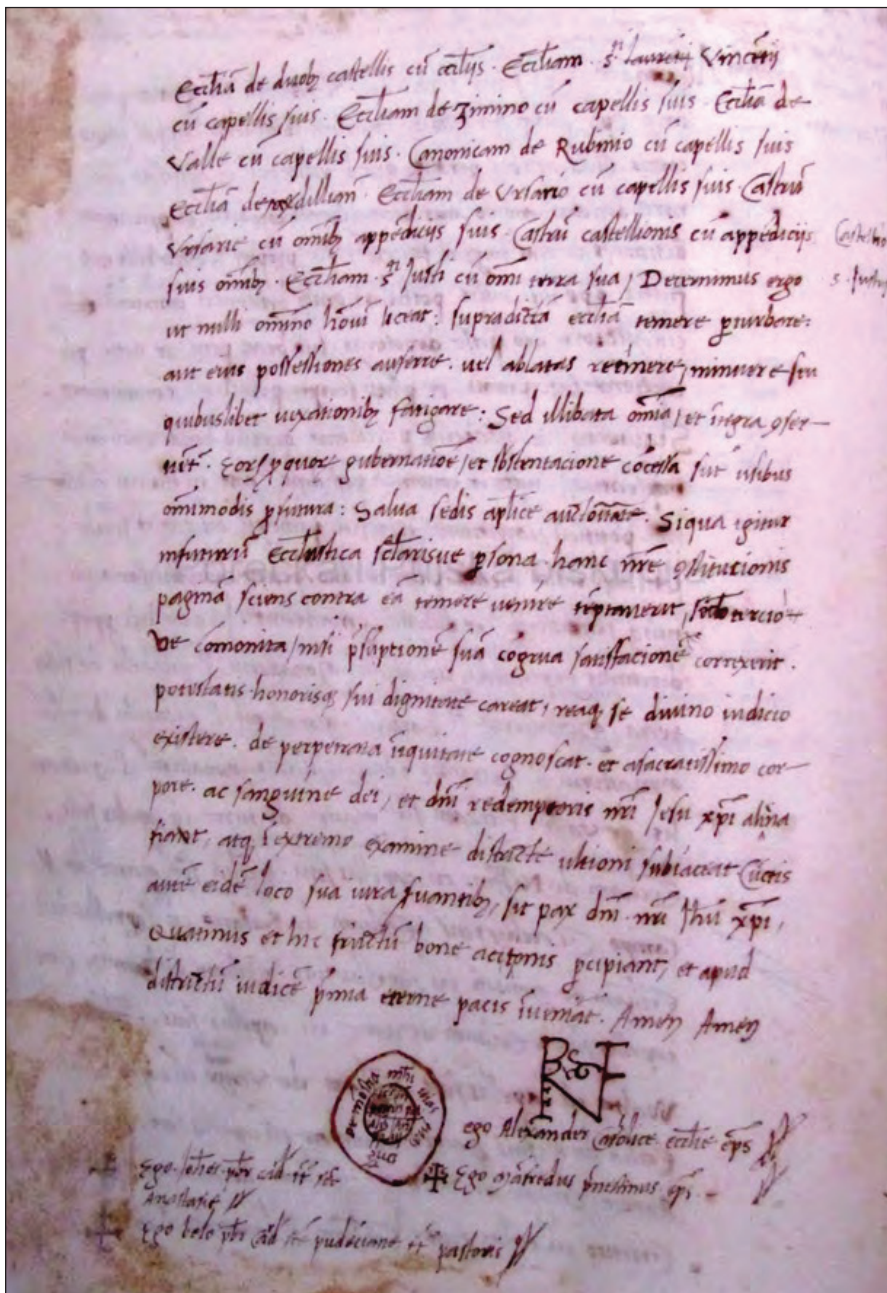 Ecclīa de duobȝ castellis cū eccliīs. Eccliam. s̄ti laurētij Vincētij
cū capellis suis. Eccliam de Zimino cū capellis suis. Eccliā de
Valle cū capellis suis. Canonicam de Rubinio cū capellis suis
Eccliā de Eccliam de Vrsario cū capellis suis. Castrū
Vrsarie cū omībȝ appēdicijs suis. Castrū castellionis cū appēdicijs
suis omībȝ. Eccliam. s̄ti Justi cū omī terra sua / Decernimus ergo
ut nulli omīno hōinī liceat: supradictā eccliā temere ꝑturbare:
aut eius possessiones auferre. uel ablatas retinere / minuere seu
quibuslibet uexationibȝ fatigare: Sed illibata omīa / et ītegra ꝯser-
uēt̄. eorꝝ ꝑ quorȝ gubernatiōe / et sbstentacione cōcessa sūt usibus
omīmodis ꝓfutura: Salua sedis aplīce auctoritate. Siqua igitur
infuturū Ecclīastica sclārisue ꝑsona hanc nr̄e ꝯstitucionis
paginā sciens contra eā temere venire tēptauerit, scd̄o tercio-
Ve comonita / nisi p̄sūptionē suā cōgrua satisfacione correxerit.
potestatis honorisqȝ sui dignitate careat, reaqȝ se diuino iudicio
existere. de perpetrata īiquitate cognoscat. et asacratissimo cor-
pore. ac sanguine dei, et dn̄i redemptoris nr̄i Jesu xp̄i aliēna
fiant, atqȝ ī extremo examine districte ultioni subiaceat Cūctis
autē eidē loco sua iura ẜuantibȝ, sit pax dn̄i. nr̄i Jh̄u xp̄i,
Quatinus et hic fructū bone actionis ꝑcipiant, et apud
districtū iudicē p̄mia eterne pacis īueniāt. Amen Amen
Castellio
s. Justi
ego Alexander Catolice ecclīe ep̄s
Ego Johēs pb̄r card̄. tt̄ sc̄e
Anastasie
✠ Ego Māfredus p̄nestinus ep̄s
Ego boso pb̄r card̄ sc̄e pudēciane tt̄ pastoris